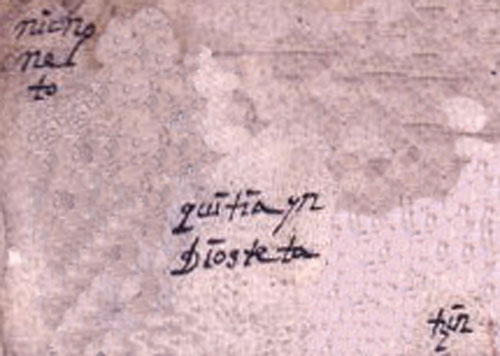 nicno
ne
to
quitia yn
Dios te ta
tzin